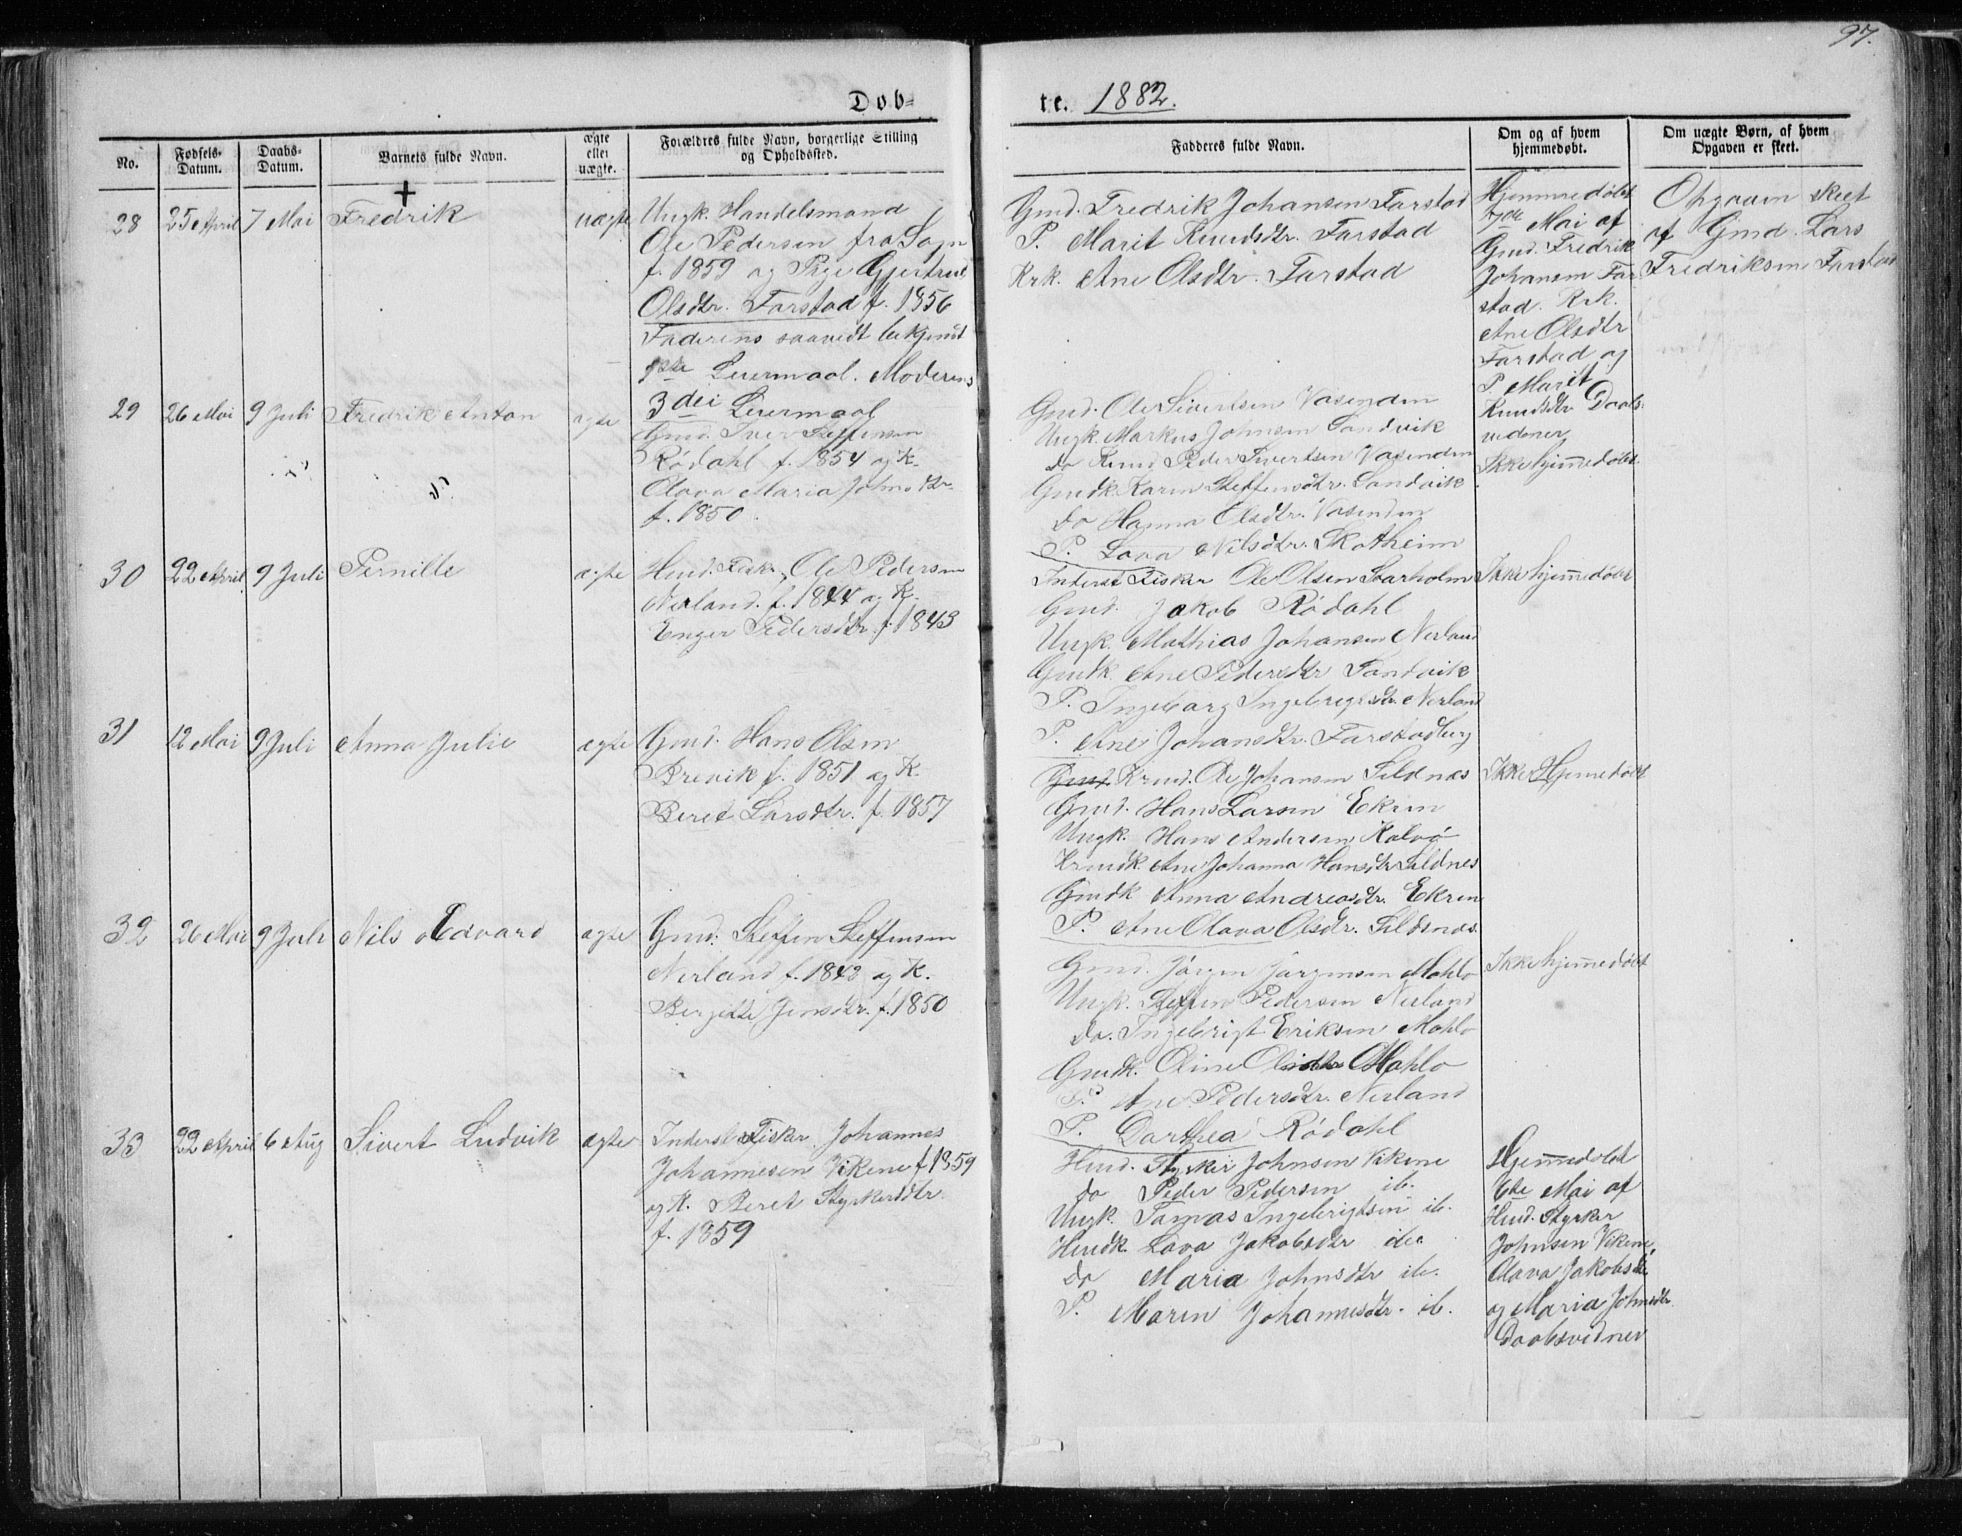 97.
Døb=
te. 1882.
No.
Fødsels-
Datum.
Daabs-
Datum.
Barnets fulde Navn.
ægte
eller
uægte.
Forældres fulde Navn, borgerlige Stilling
og Opholdssted.
Fadderes fulde Navn.
Om og af hvem
hjemmedøbt.
Om uægte Børn, af hvem
Opgaven er skeet.
28
25 April
7 Mai
+
Fredrik
uægte
Ungk. Handelsmand
Ole Pedersen fra Sogn
f. 1859 og Pige Gjertrud
Olsdtr. Farstad f. 1856
Faderens saavidt bekjendt
1ste Leiermaal. Moderens
3die Leiermaal
Gmd. Fredrik Johansen Farstad
P. Marit Knudsdtr. Farstad
Krk. Ane Olsdtr. Farstad
Hjemmedøbt
Mai af
Gmd. Fredrik
Johansen Far
stad. Krk.
Ane Olsdtr
Farstad og
P Marit
Knudsdtr Daabs-
vidner
Opgaven skeet
af Gmd. Lars
Fredriksen Farstad
29
26 Mai
9 Juli
Fredrik Anton
ægte
Gmd. Iver Steffensen
Rødahl f. 1854 og K.
Olava Maria Johnsdtr.
f. 1850.
Gmd. Ole Sivertsen Vasenden
Ungk. Markus Johnsen Sandvik
do Knud Peder Sivertsen Vasenden
Gmdk. Karen Steffensdtr. Sandvik
do Hanna Olsdtr. Vasenden
P. Lava Nilsdtr. Skotheim
Ikke hjemmedøbt.
30
22 April
9 Juli
Pernille
ægte
Hmd. Fisker Ole Pedersen
Nerland. f. 1844 og K.
Enger Pedersdtr. f. 1843
Inderst Fisker Ole Olsen Svarholm
Gmd. Jakob Rødahl
Ungk. Mathias Johansen Nerland
Gmdk. Ane Pedersdtr Sandvik
P. Ingeborg Ingebrigtsdtr. Nerland
P. Ane Johansdtr. Farstadberg
Ikke hjemmedøbt
31
12 Mai
9 Juli
Anna Julie
ægte
Gmd. Hans Olsen
Brevik f. 1851 og K.
Beret Larsdtr. f. 1857
Gmd. Krmd. Ole Johansen Sildnæs
Gmd. Hans Larsen Ekren
Ungk. Hans Andersen Kalvø
Krmdk. Ane Johanna Hansdtr Sildnes
Gmdk Anna Andreasdtr. Ekren
P. Ane Olava Olsdtr. Sildnæs.
Ikke Hjemmedøbt
32
26 Mai
9 Juli
Nils Edvard
ægte
Gmd. Steffen Steffensen
Nerland f. 1843 og K.
Bergitte Jensdtr. f. 1850
Gmd. Jørgen Jørgensen Mahlo
Ungk. Steffen Pedersen Nerland
do. Ingebrigt Eriksen Mahlo
Gmdk. Oline Olsdtr Mahlo
P. Ane Pedersdtr. Nerland
P. Darthea Rødahl
Ikke hjemmedøbt
33
22 April
6 Aug
Sivert Ludvik
ægte
Inderst Fisker Johannes
Johannesen Vikene f. 1859
og K. Beret Styrkersdtr.
f. 1859
Hmd. Styrker Johnsen Vikene
do Peder Pedersen ib.
Ungk. Tomas Ingebrigtsen ib.
Hmdk. Lava Jakobsdtr ib.
do Maria Johnsdtr ib.
P. Maren Johannesdtr. ib.
Hjemmedøbt
6te Mai af
Hmd. Styrker
Johnsen Vikene
Olava Jakobsdtr
og Maria Johnsdtr
Daabsvidner